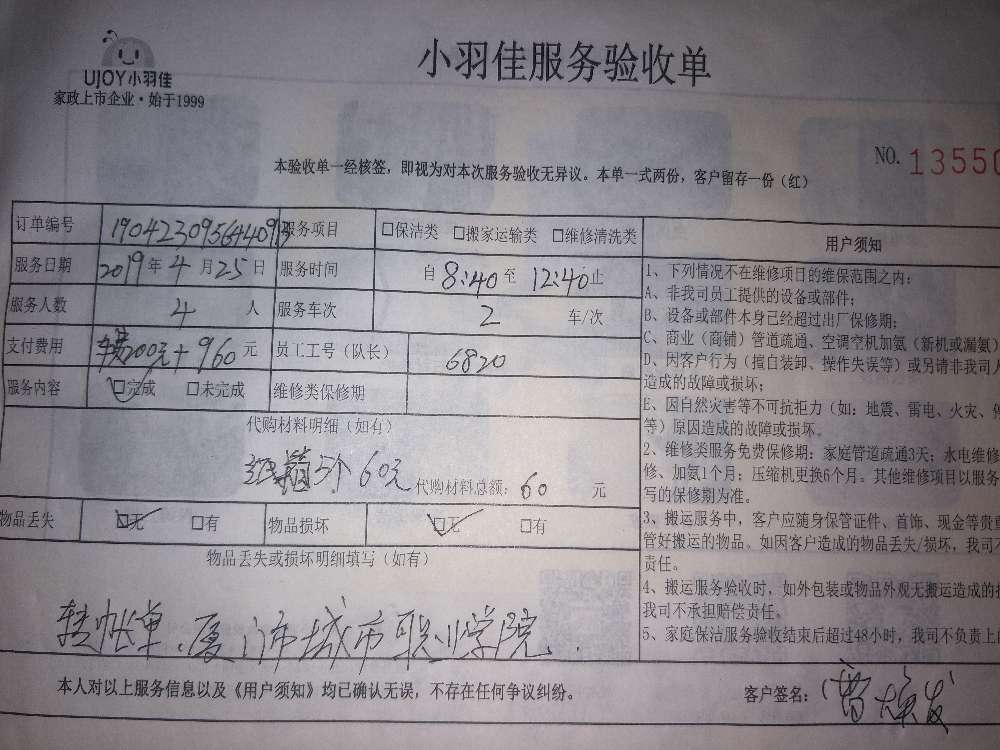 UJOY小羽佳
家政上市企业·始于1999
小羽佳服务验收单
NO. 13550
本验收单一经核签，即视为对本次服务验收无异议。本单一式两份，客户留存一份（红）
订单编号 服务项目 □保洁类 □搬家运输类 □维修清洗类
服务日期 2019年4月25日 服务时间 自8:40至12:40止
服务人数 4 人 服务车次 2 车/次
支付费用 200元+960元 员工工号（队长） 6820
服务内容 □完成 □未完成 维修类保修期
代购材料明细（如有）
纸箱5个60元 代购材料总额：60 元
物品丢失 □无 □有 物品损坏 □无 □有
物品丢失或损坏明细填写（如有）
转帐单、厦门市城市职业学院.
用户须知
1、下列情况不在维修项目的维保范围之内：
A、非我司员工提供的设备或部件；
B、设备或部件本身已经超过出厂保修期；
C、商业（商铺）管道疏通、空调空机加氨（新机或漏氨）
D、因客户行为（擅自装卸、操作失误等）或另请非我司人
造成的故障或损坏；
E、因自然灾害等不可抗拒力（如：地震、雷电、火灾、
等）原因造成的故障或损坏。
2、维修类服务免费保修期：家庭管道疏通3天；水电维修
修、加氨1个月；压缩机更换6个月。其他维修项目以服务
写的保修期为准。
3、搬运服务中，客户应随身保管证件、首饰、现金等贵重
管好搬运的物品。如因客户造成的物品丢失/损坏，我司不
责任。
4、搬运服务验收时，如外包装或物品外观无搬运造成的
我司不承担赔偿责任。
5、家庭保洁服务验收结束后超过48小时，我司不负责上
本人对以上服务信息以及《用户须知》均已确认无误，不存在任何争议纠纷。 客户签名：